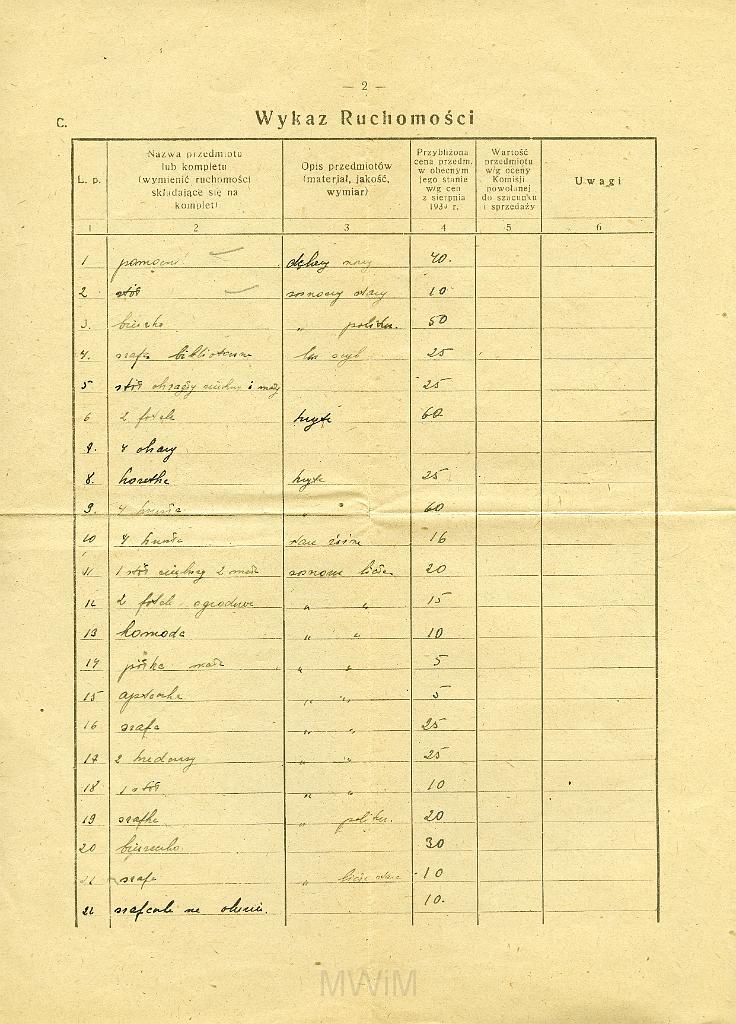 — 2 —
C.
Wykaz Ruchomości
L. p.
Nazwa przedmiotu
lub kompletu
(wymienić ruchomości
składające się na
komplet)
Opis przedmiotów
(materjał, jakość,
wymiar)
Przybliżona
cena przedm.
w obecnym
jego stanie
w/g cen
z sierpnia
1939 r.
Wartość
przedmiotu
w/g oceny
Komisji
powołanej
do szacunku
i sprzedaży
Uwagi
1 2 3 4 5 6
1 40.
2 stół sosnowy stary 10
3. biurko " politur. 50
4. szafa 25
5 stół okrągły i mały 25
6 2 fotele kryte 60
7. 4
8. kozetka kryte 25
9. 4 krzesła " 60
10 4 krzesła 16
11 1 stół 2 małe sosnowe 20
12 2 fotele ogrodowe " " 15
13 komoda " " 10
14 półka mała " " 5
15 apteczka " " 5
16 szafa " " 25
17 2 kredensy " " 25
18 1 stół " " 10
19 szafka " politur. 20
20 biureczko 30
21 szafa " 10
22 szafeczki na 10.
MWiM